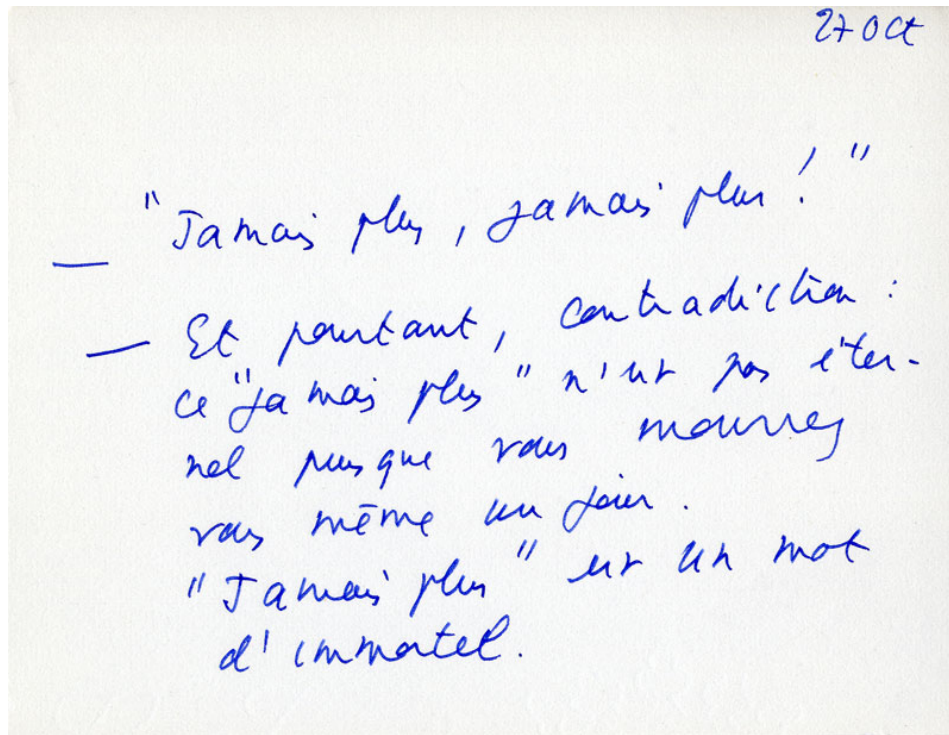 27 Oct
— "Jamais plus, jamais plus ! "
— Et pourtant, contradiction :
ce "jamais plus" n'est pas éter-
nel puisque vous mourrez
vous même un jour.
"Jamais plus" est un mot
d'immortel.